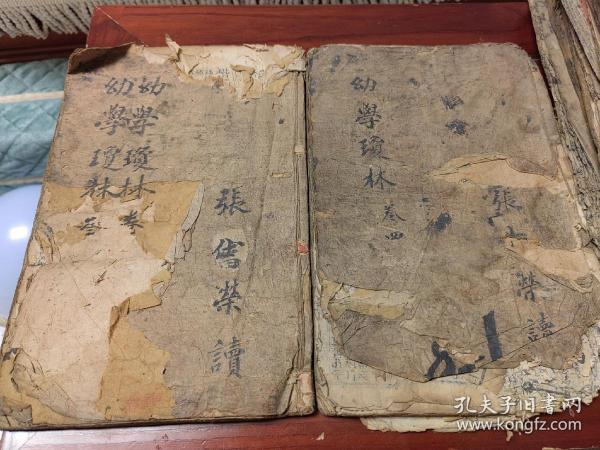 幼學瓊林 卷
幼學瓊林 叁
張雋榮讀
幼學瓊林 卷四
張 榮讀
孔夫子旧书网
www.kongfz.com